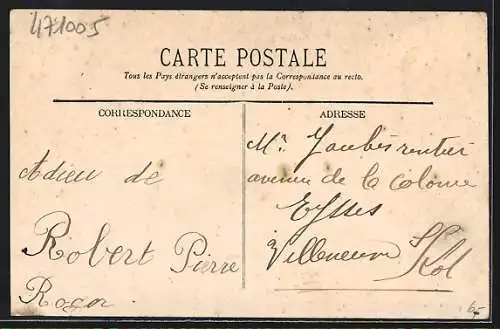 471005
CARTE POSTALE
Tous les Pays étrangers n'acceptent pas la Correspondance au recto.
(Se renseigner à la Poste).
CORRESPONDANCE
Adieu de
Robert Pierre
Roger
ADRESSE
Mr rentier
avenue de la Colonie
Eysses
Villeneuve s/Lot